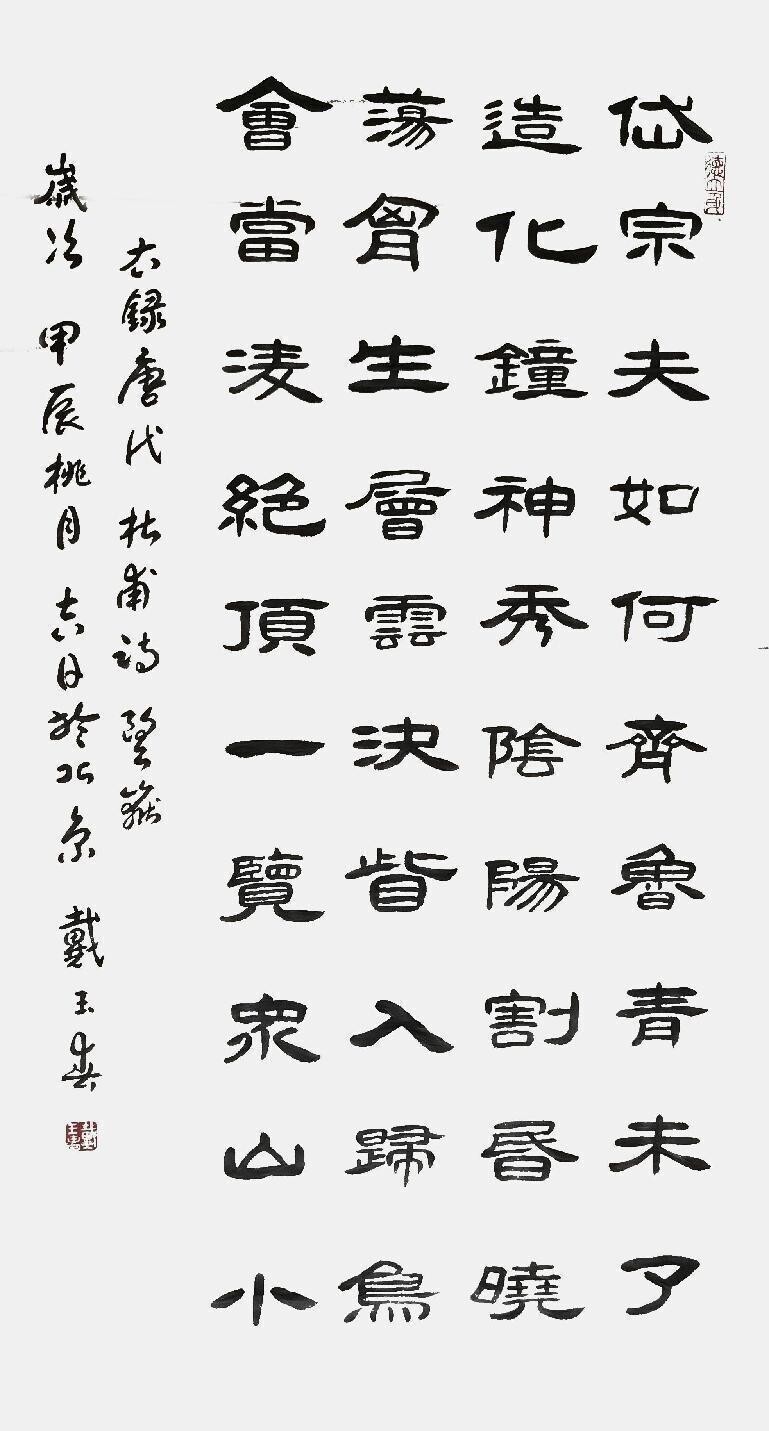 岱宗夫如何齊魯青未了
造化鐘神秀陰陽割昏曉
蕩胷生層雲決眥入歸鳥
會當淩絕頂一覽衆山小
右録唐代杜甫詩望嶽
歲次甲辰桃月吉日於北京戴玉春